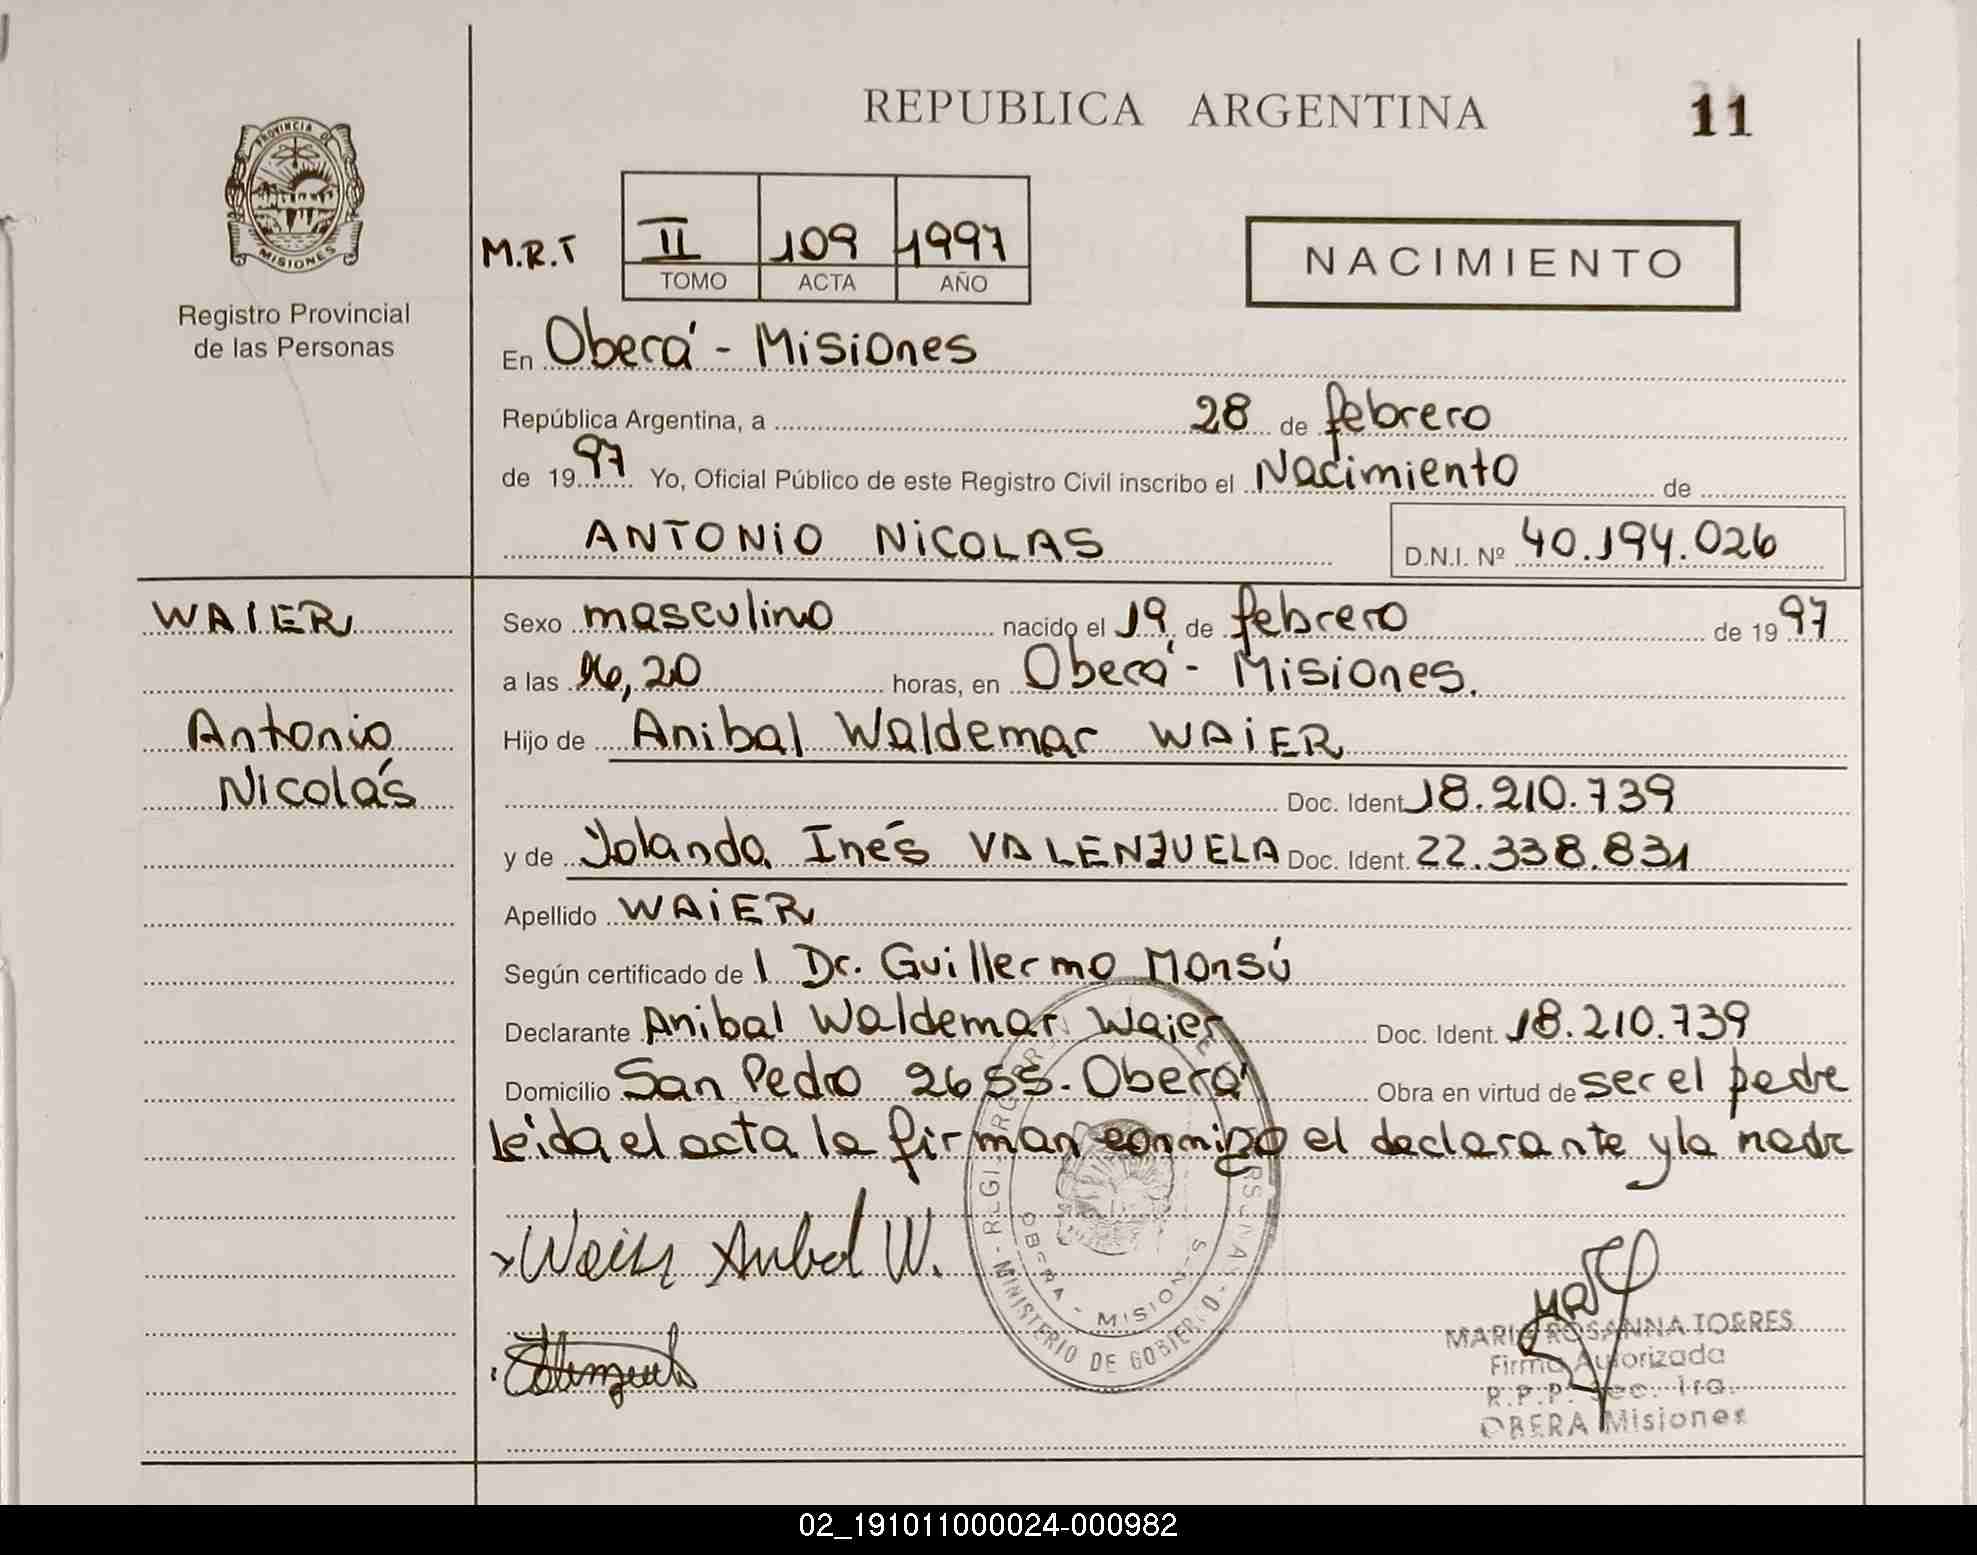 REPUBLICA ARGENTINA
11
PROVINCIA DE MISIONES
Registro Provincial
de las Personas
M.R.T
II 109 1997
TOMO ACTA AÑO
NACIMIENTO
En Oberá - Misiones
República Argentina, a 28 de febrero
de 1997 Yo, Oficial Público de este Registro Civil inscribo el Nacimiento de
ANTONIO NICOLAS D.N.I. Nº 40.194.026
WAIER
Antonio
Nicolás
Sexo masculino nacido el 19 de febrero de 1997
a las 16,20 horas, en Oberá - Misiones.
Hijo de Anibal Waldemar WAIER
Doc. Ident. 18.210.739
y de Yolanda Inés VALENZUELA Doc. Ident. 22.338.831
Apellido WAIER
Según certificado de l Dr. Guillermo Monsú
Declarante Anibal Waldemar Waier Doc. Ident. 18.210.739
Domicilio San Pedro 2655 - Oberá Obra en virtud de ser el padre
Leida el acta la firman conmigo el declarante y la madre
Waier Anibal W.
MINISTERIO DE GOBIERNO
OBERA - MISIONES
MARIA ROSANNA TORRES
Firma Autorizada
R.P.P. Sec. 1ra.
OBERA Misiones
02_191011000024-000982